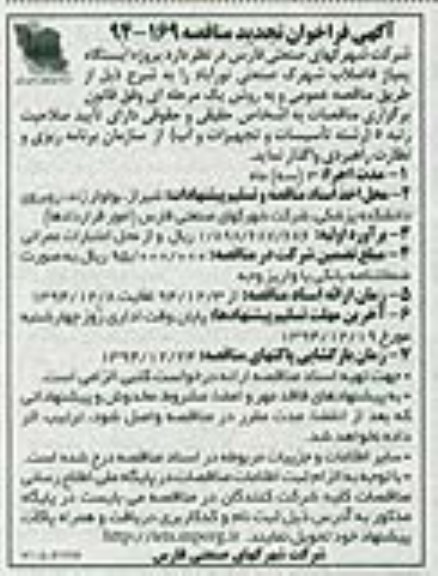 آگهی فراخوان تجدید مناقصه ۱۶۹-۹۴
شرکت شهرکهای صنعتی فارس در نظر دارد پروژه ایستگاه
پمپاژ فاضلاب شهرک صنعتی نورآباد را به شرح ذیل از
طریق مناقصه عمومی و به روش یک مرحله ای وفق قانون
برگزاری مناقصات به اشخاص حقیقی و حقوقی دارای تأیید صلاحیت
رتبه ۵ (رشته تأسیسات و تجهیزات و آب) از سازمان برنامه ریزی و
نظارت راهبردی واگذار نماید.
۱- مدت اجرا: ۳ (سه) ماه
۲- محل اخذ اسناد مناقصه و تسلیم پیشنهادات: شیراز، بولوار زند، روبروی
دانشکده پزشکی، شرکت شهرکهای صنعتی فارس (امور قراردادها)
۳- برآورد اولیه: ریال و از محل اعتبارات عمرانی
۴- مبلغ تضمین شرکت در مناقصه: ۹۵/۰۰۰/۰۰۰ ریال به صورت
ضمانتنامه بانکی یا واریز وجه
۵- زمان ارائه اسناد مناقصه: از ۹۴/۱۲/۳ لغایت ۱۳۹۴/۱۲/۸
۶- آخرین مهلت تسلیم پیشنهادها: پایان وقت اداری روز چهارشنبه
مورخ ۱۳۹۴/۱۲/۱۹
۷- زمان بازگشایی پاکتهای مناقصه: ۱۳۹۴/۱۲/۲۴
• جهت تهیه اسناد مناقصه ارائه درخواست کتبی الزامی است.
• به پیشنهادهای فاقد مهر و امضا، مشروط، مخدوش و پیشنهاداتی
که بعد از انقضا مدت مقرر در مناقصه واصل شود، ترتیب اثر
داده نخواهد شد.
• سایر اطلاعات و جزییات مربوطه در اسناد مناقصه درج شده است.
• با توجه به الزام ثبت اطلاعات مناقصات در پایگاه ملی اطلاع رسانی
مناقصات کلیه شرکت کنندگان در مناقصه می بایست در پایگاه
مذکور به آدرس ذیل ثبت نام و کدکاربری دریافت و همراه پاکات
پیشنهاد خود تحویل نمایند. http://iets.mporg.ir
شرکت شهرکهای صنعتی فارس